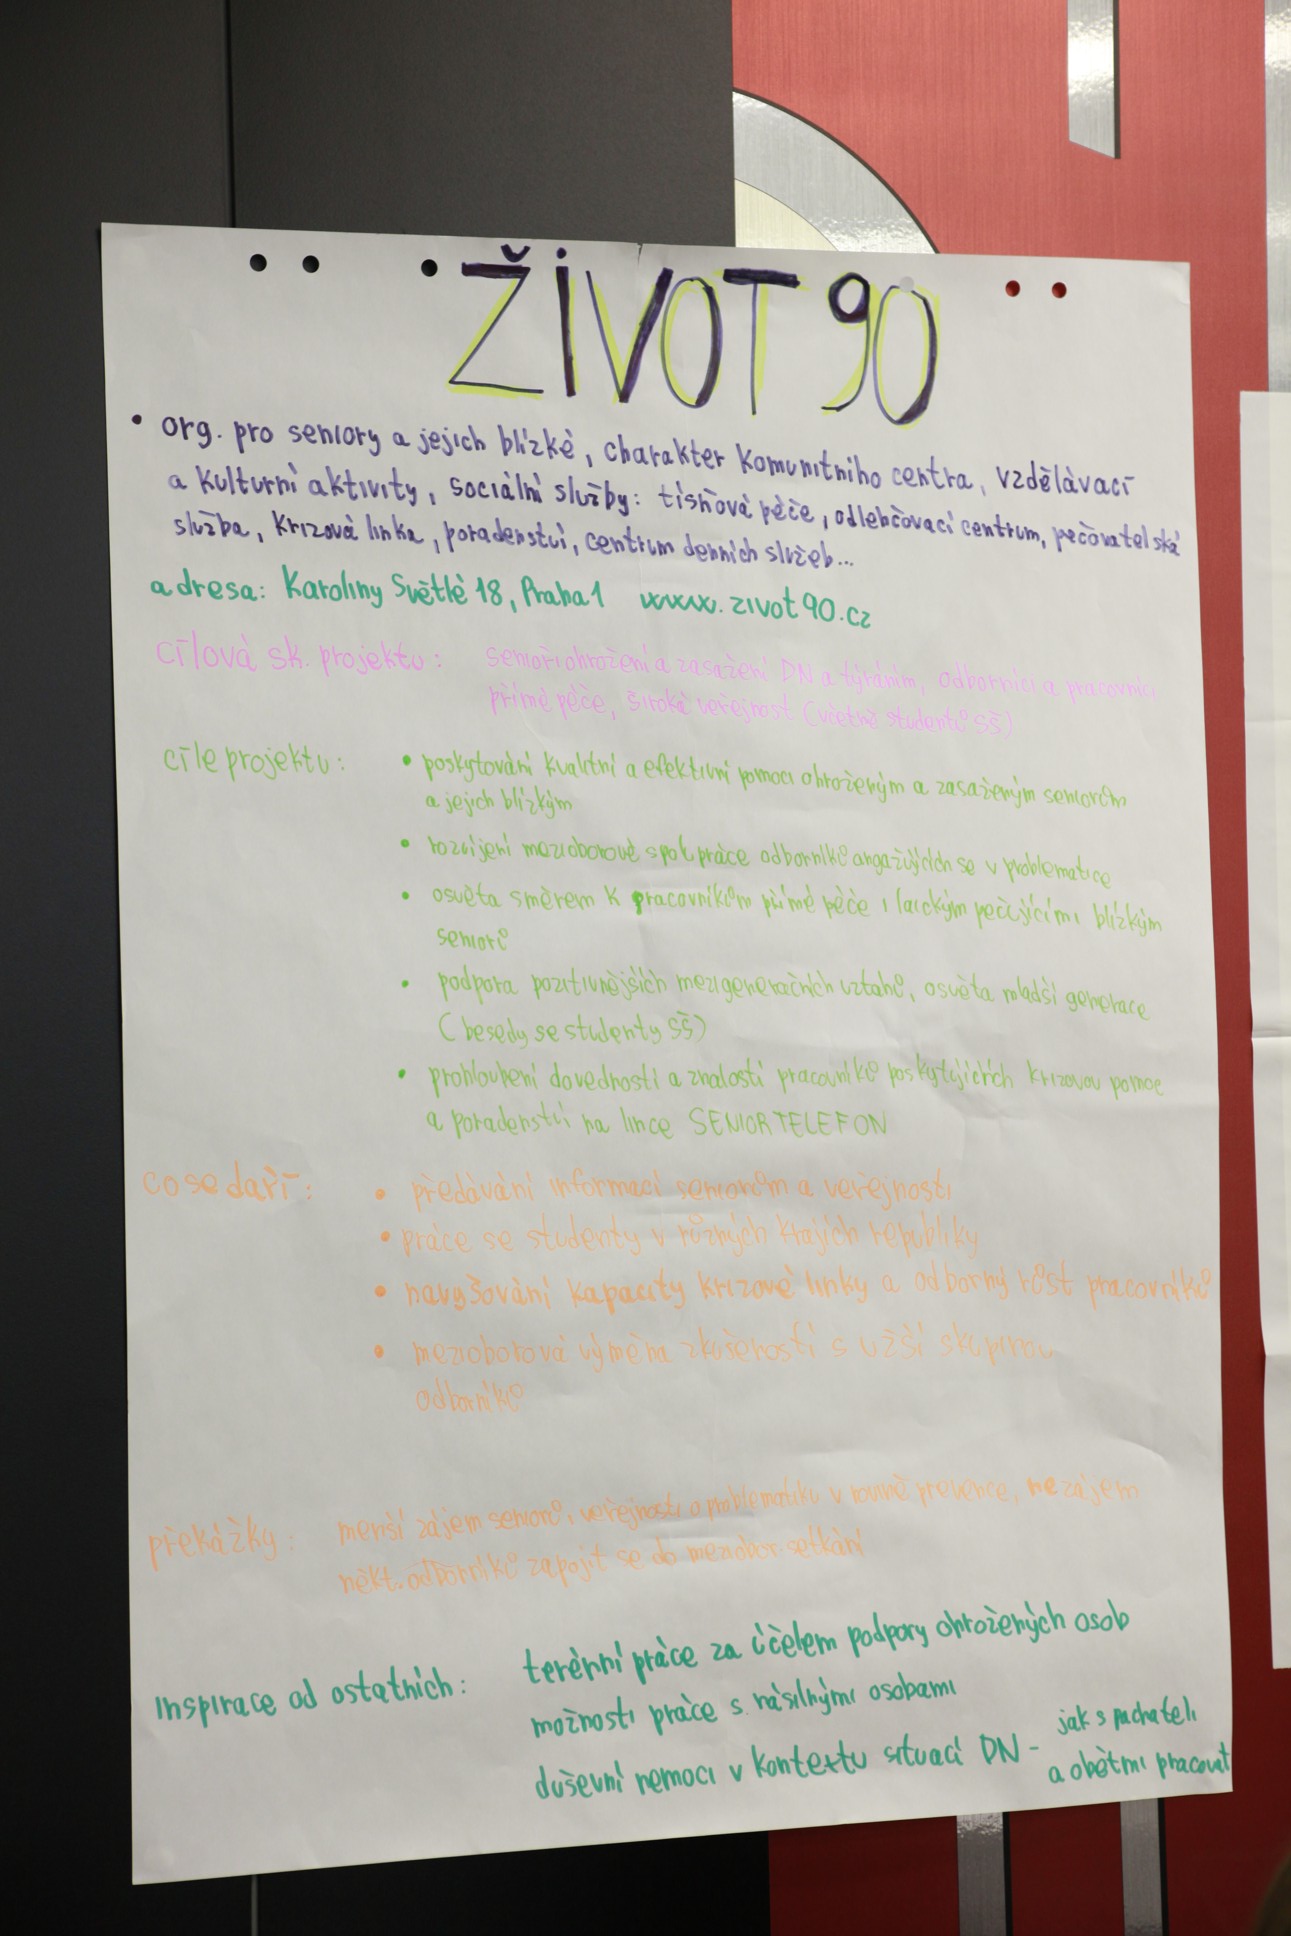 ŽIVOT 90
• org. pro seniory a jejich blízké, charakter komunitního centra, vzdělávací
a kulturní aktivity, sociální služby: tísňová péče, odlehčovací centrum, pečovatelská
služba, krizová linka, poradenství, centrum denních služeb...
adresa: Karoliny Světlé 18, Praha 1 www.zivot90.cz
cílová sk. projektu: senioři ohrožení a zasažení DN a týráním, odborníci a pracovníci
přímé péče, široká veřejnost (včetně studentů SŠ)
cíle projektu: • poskytování kvalitní a efektivní pomoci ohroženým a zasaženým seniorům
a jejich blízkým
• rozvíjení mezioborové spolupráce odborníků angažujících se v problematice
• osvěta směrem k pracovníkům přímé péče i laickým pečujícími blízkým
seniorů
• podpora pozitivnějších mezigeneračních vztahů, osvěta mladší generace
(besedy se studenty SŠ)
• prohloubení dovedností a znalostí pracovníků poskytujících krizovou pomoc
a poradenství na lince SENIOR TELEFON
co se daří: • předávání informací seniorům a veřejnosti
• práce se studenty v různých krajích republiky
• navyšování kapacity krizové linky a odborný růst pracovníků
• mezioborová výměna zkušeností s užší skupinou
odborníků
překážky: menší zájem seniorů i veřejnosti o problematiku v rovině prevence, nezájem
někt. odborníků zapojit se do meziobor. setkání
inspirace od ostatních: terénní práce za účelem podpory ohrožených osob
možnosti práce s násilnými osobami
duševní nemoci v kontextu situací DN - jak s pachateli
a obětmi pracovat